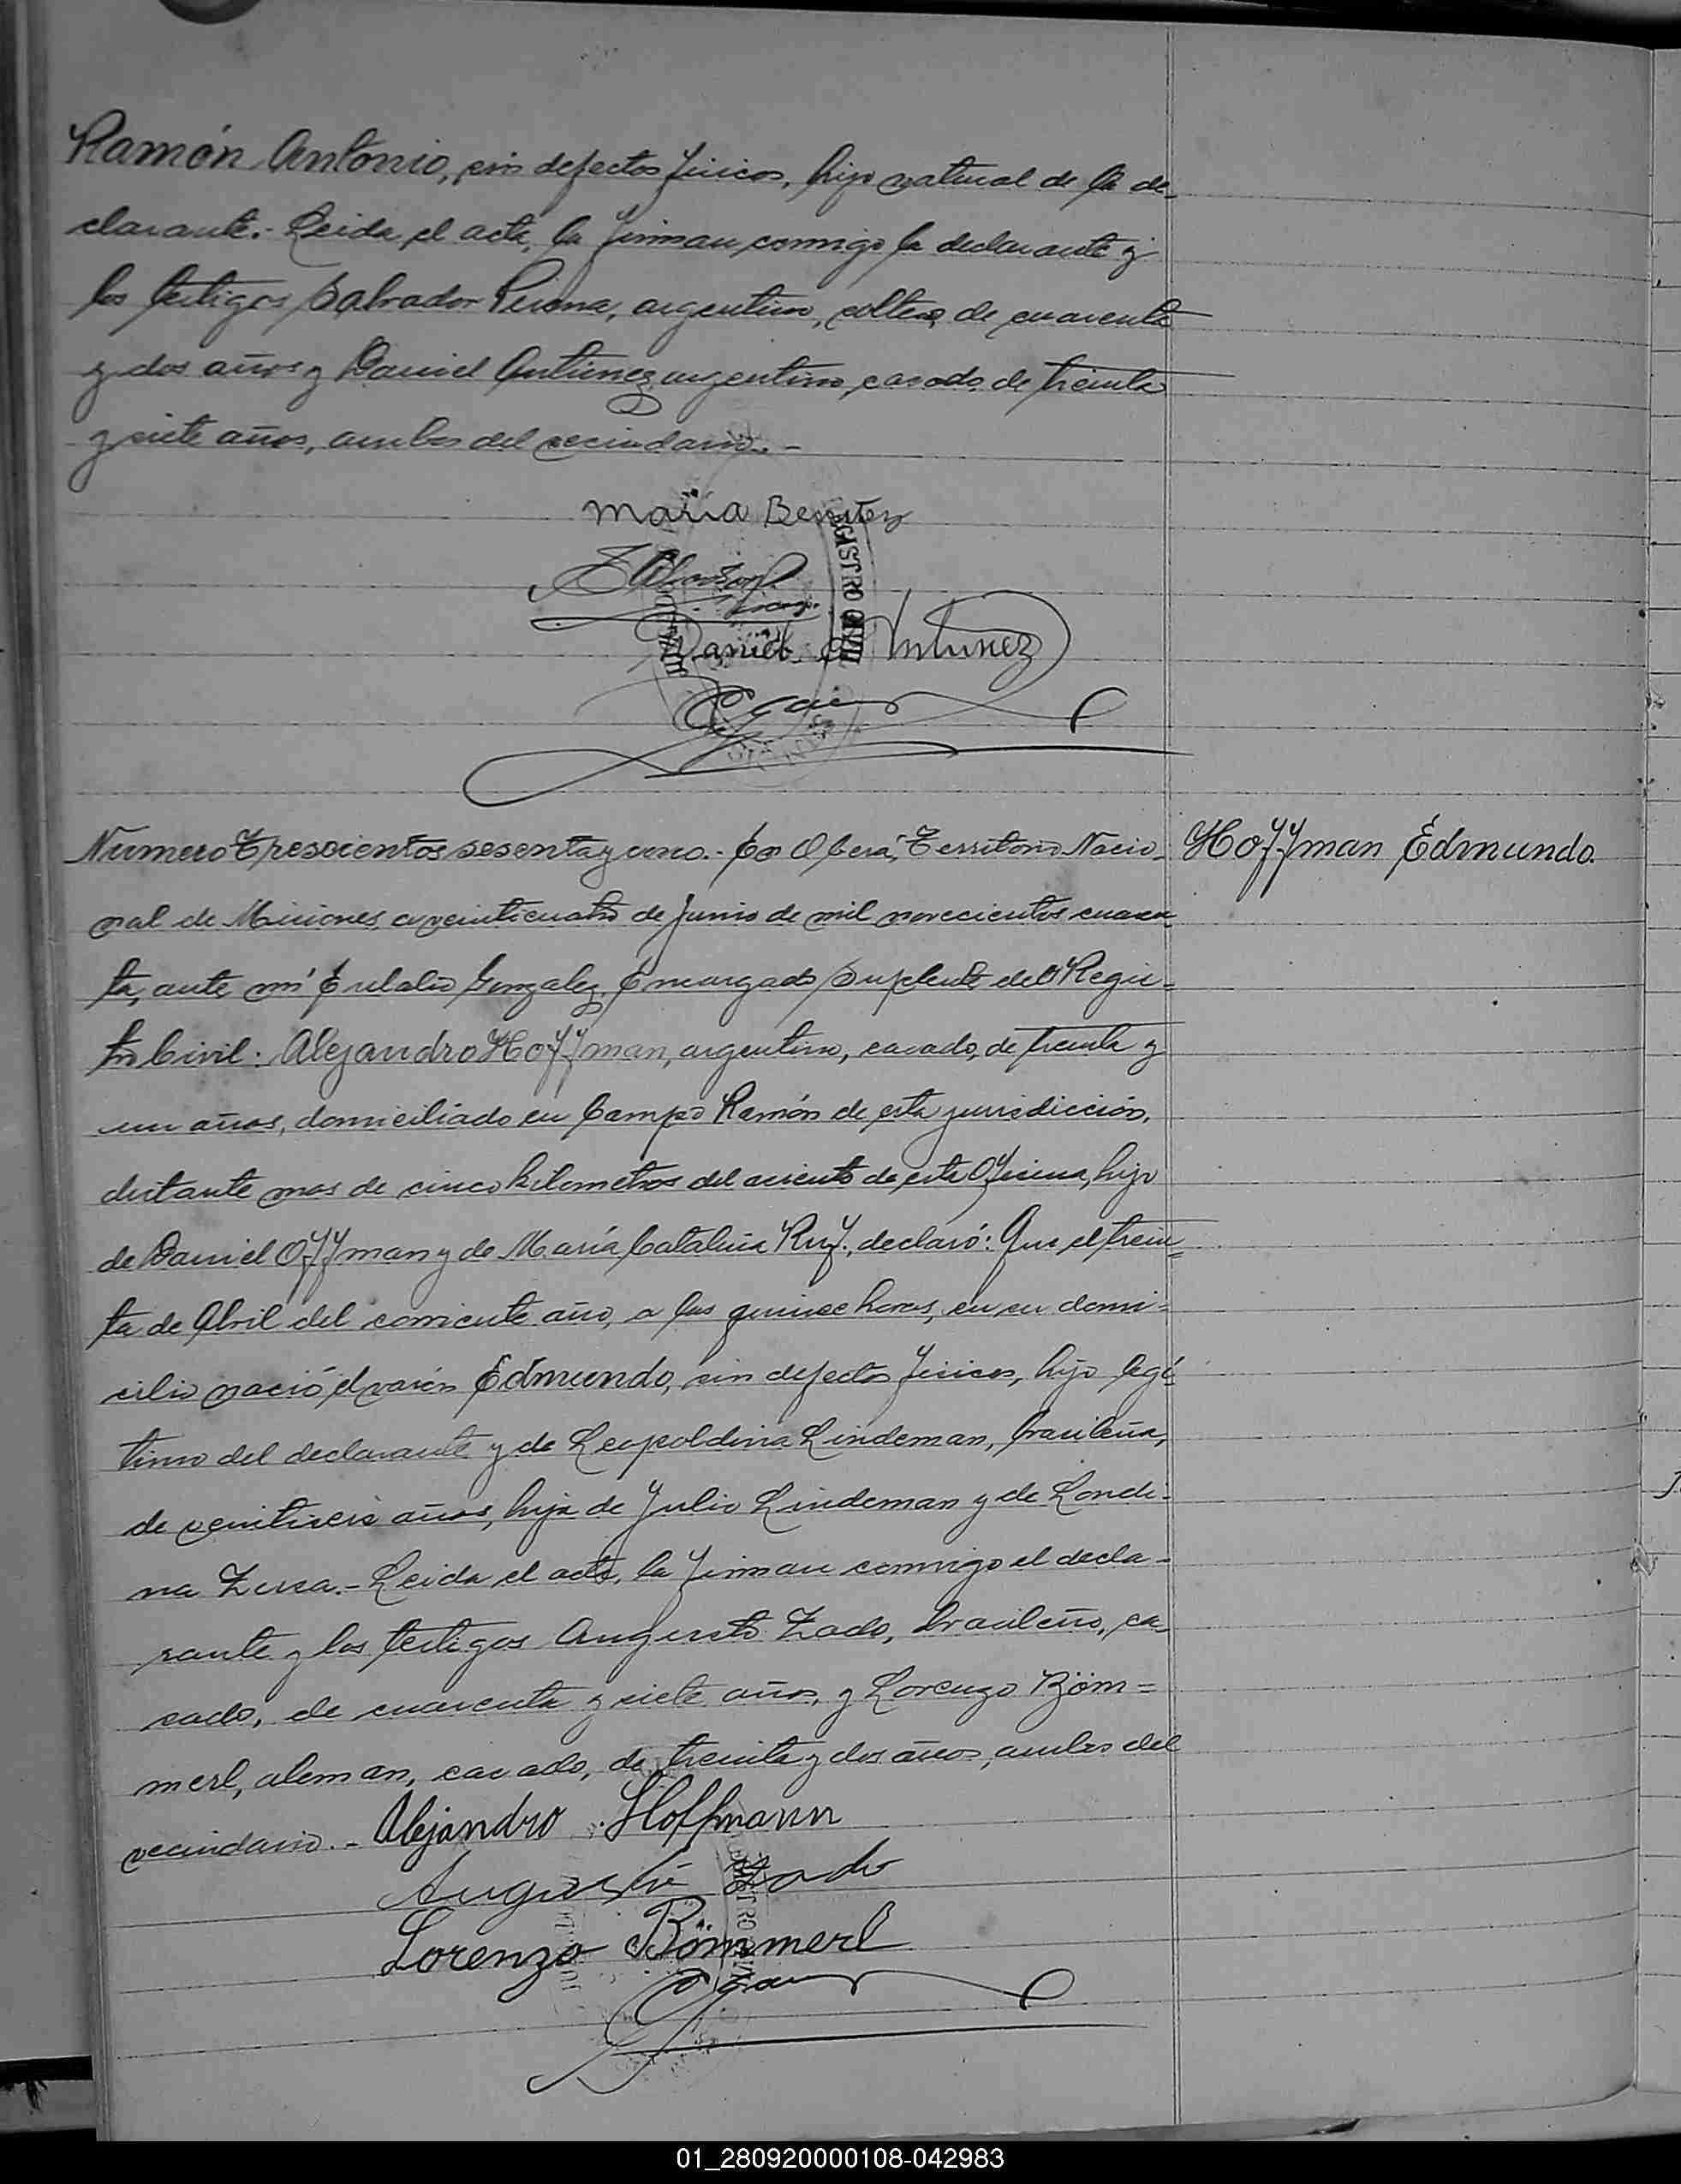 Ramón Antonio, sin defectos físicos, hijo natural de la de-
clarante.- Leida el acta, la firman conmigo la declarante y
los testigos Salvador Persona, argentino, soltero, de cuarenta
y dos años y Daniel Antunez argentino, casado, de treinta
y siete años, ambos del vecindario.-
Maria Benitez
Daniel Antunez
REGISTRO CIVIL
Numero Trescientos sesenta y uno.- En Oberá, Territorio Nacio-
nal de Misiones, a veinticuatro de Junio de mil novecientos cuaren-
ta, ante mí Eulalio Gonzalez, Encargado Suplente del Regis-
tro Civil: Alejandro Hoffman, argentino, casado, de treinta y
un años, domiciliado en Campo Ramón de esta jurisdicción,
distante mas de cinco kilometros del asiento de esta Oficina, hijo
de Daniel Offman y de María Catalina Ruf, declaró: Que el trein-
ta de Abril del corriente año, a las quince horas, en su domi-
cilio nació el varón Edmundo, sin defectos físicos, hijo legí-
timo del declarante y de Leopoldina Lindeman, brasileña,
de veintiseis años, hija de Julio Lindeman y de Londi-
na .- Leida el acta, la firman conmigo el decla-
rante y los testigos Augusto Zado, brasileño, ca-
sado, de cuarenta y siete años, y Lorenzo Böm=
merl, aleman, casado, de treinta y dos años, ambos del
vecindario.- Alejandro Hoffmann
Augusto Zado
Lorenzo Bömmerl
Hoffman Edmundo.
01_280920000108-042983